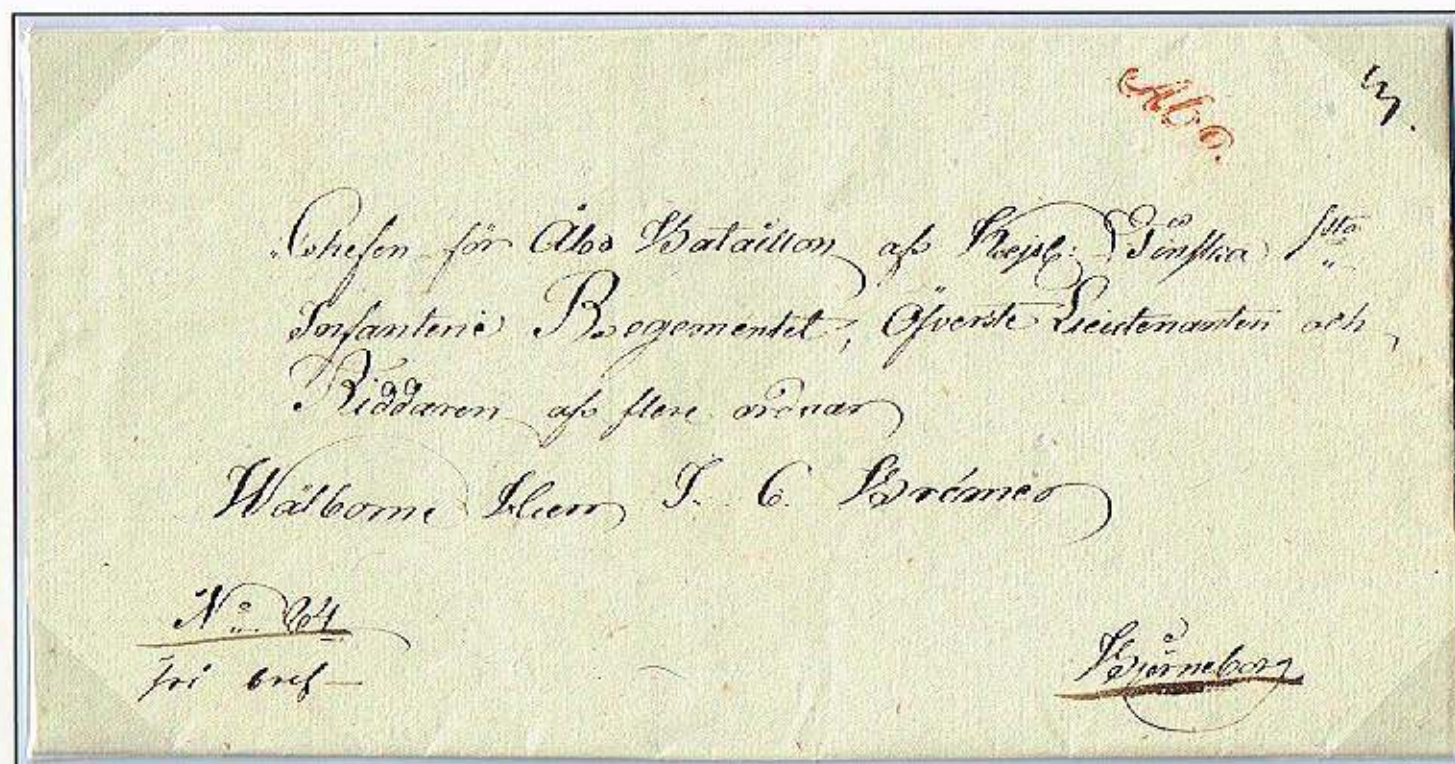 Åbo.
3.
Chefen för Åbo Bataillon af Kejs: Finska 1sta
Infanterie Regementet, Öfverste Lieutenanten och
Riddaren af flere ordnar
Wälborne Herr J. C. Brömer
No 64
fri bref
Björneborg